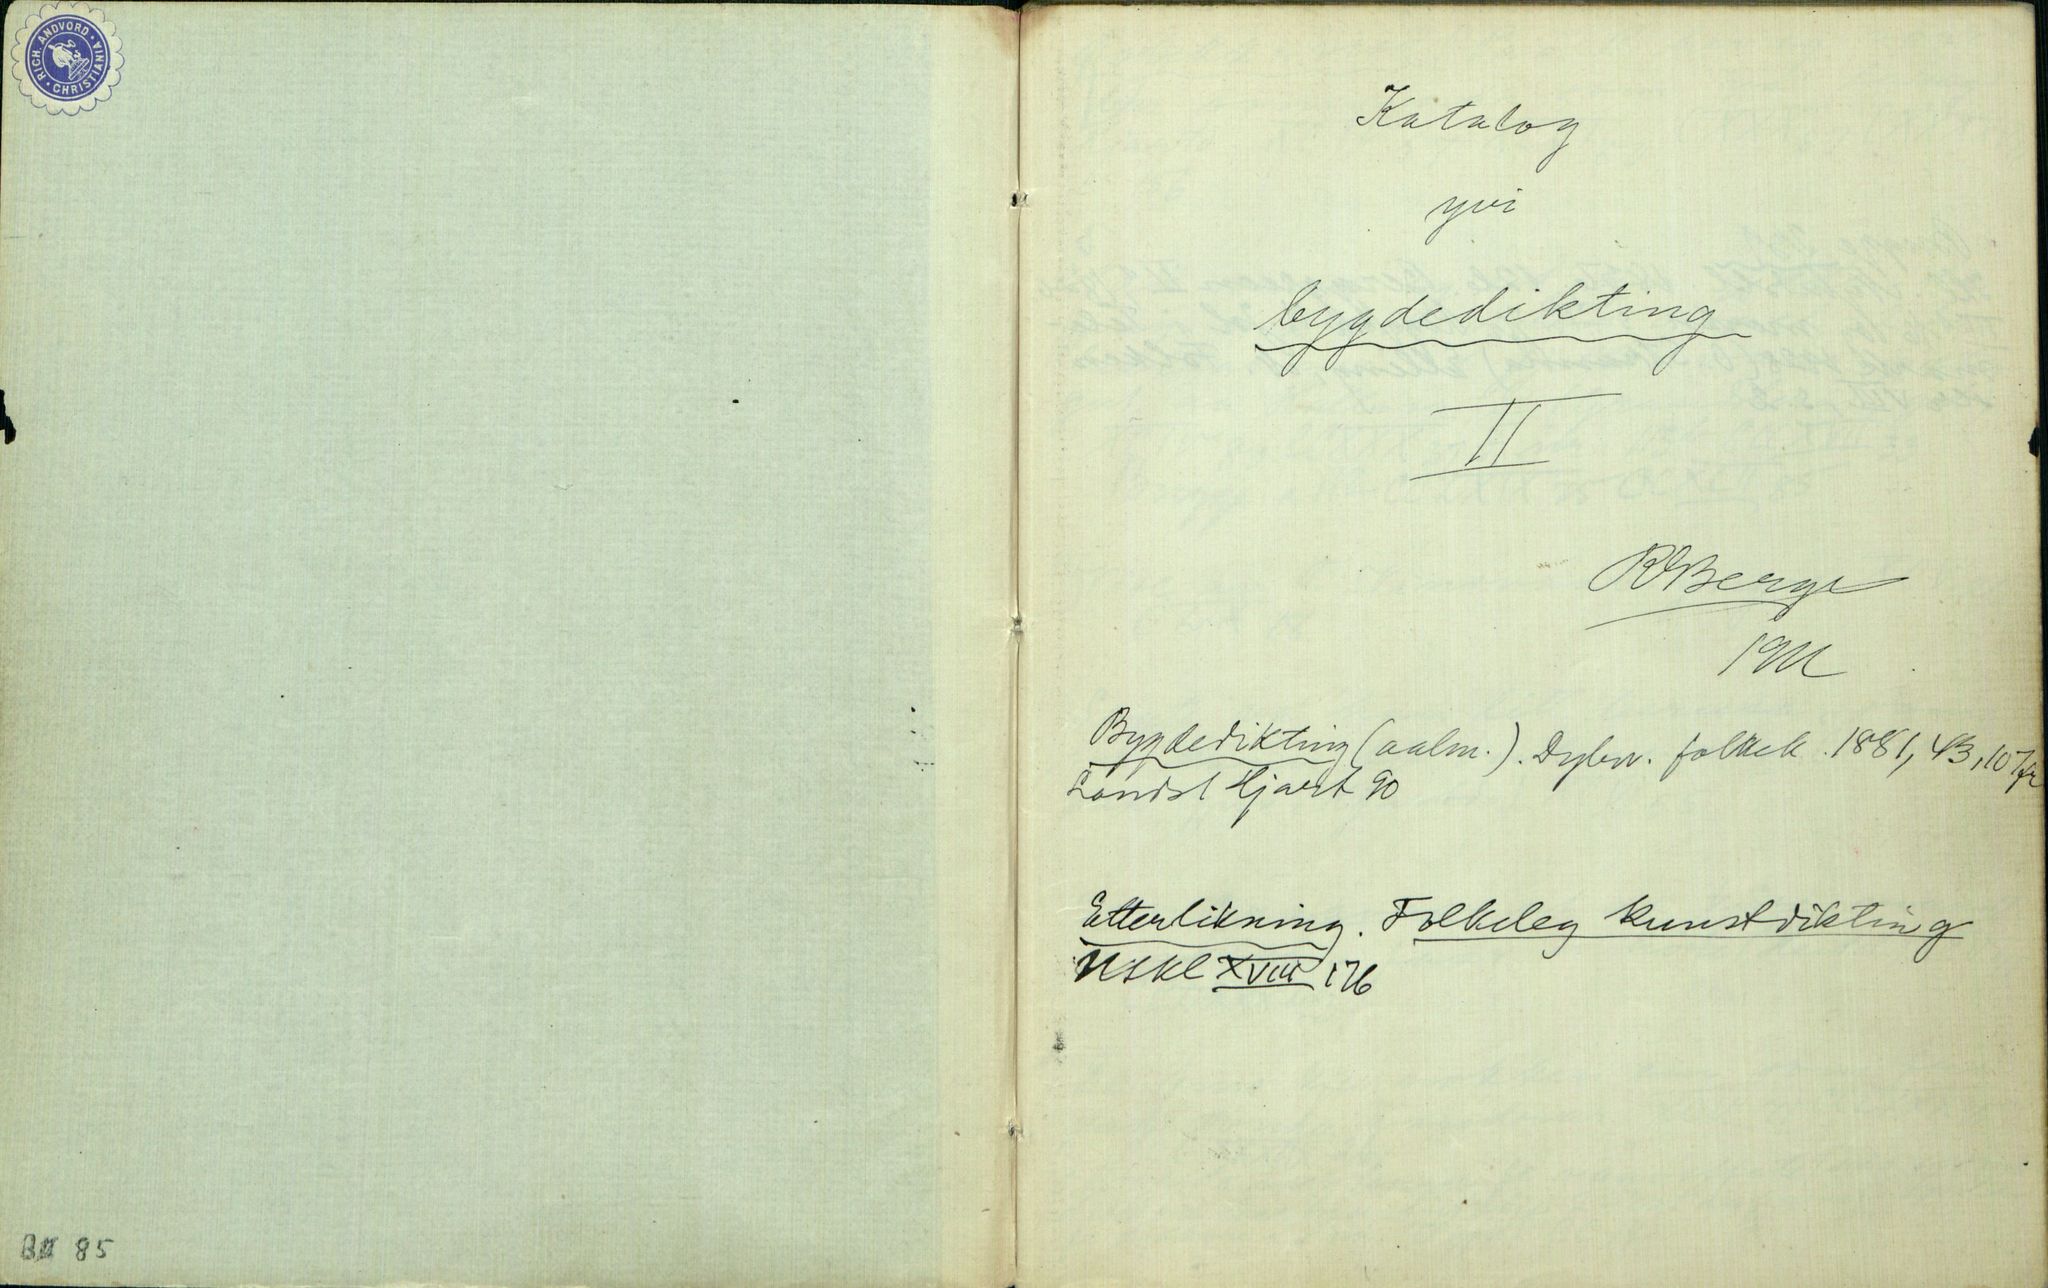 RICH. ANDVORD · CHRISTIANIA
85
Katalog
yvi
bygdedikting
II
RBerge
1911
Bygdedikting (aalm.). Dybw. folkek. 1881, 43, 107
Landst Hjart 90
Etterlikning. Folkeleg kunstdikting
XVIII 176